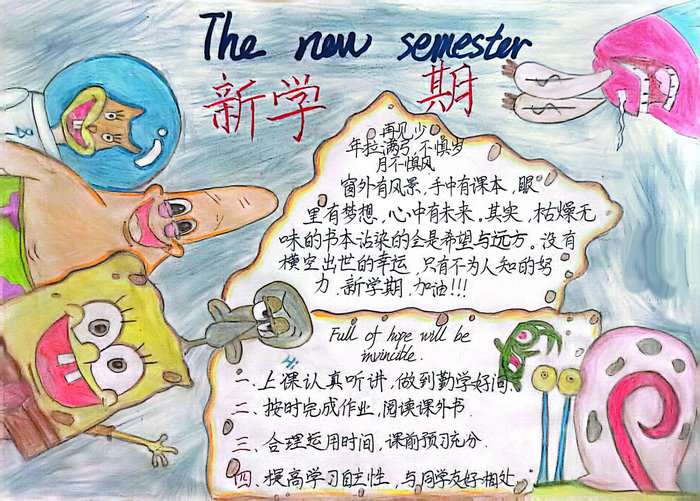 The new semester
新学期
再见少
年拉满弓,不惧岁
月不惧风
窗外有风景,手中有课本,眼
里有梦想,心中有未来,其实,枯燥无
味的书本沾染的全是希望与远方。没有
横空出世的幸运,只有不为人知的努
力.新学期,加油!!!
Full of hope will be
invincible.
一、上课认真听讲,做到勤学好问.
二、按时完成作业,阅读课外书.
三、合理运用时间,课前预习充分.
四、提高学习自主性,与同学友好相处